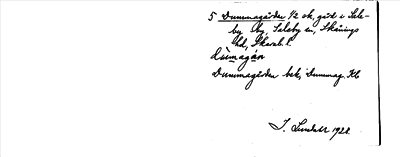 5 Dummagården 1/2 sk, gård i Sale-
by by, Saleby sn, Skånings
hd, Skarab. l.
dùmagán
Dummagården bek, Dummag. Kb
J. Lundahl 1921.